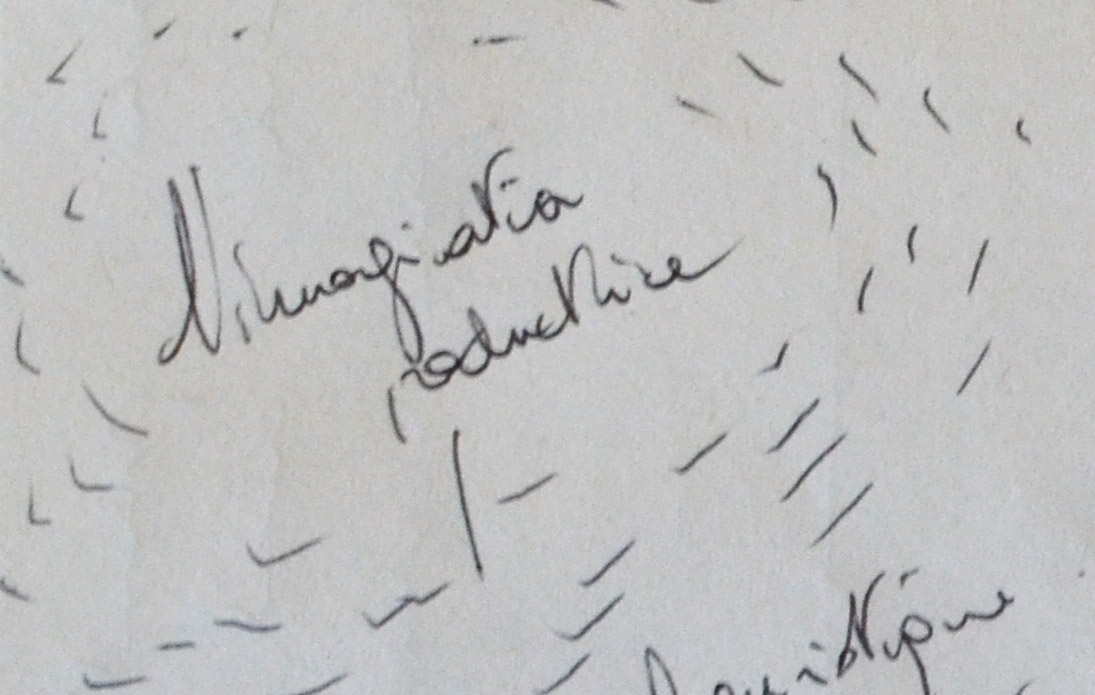 l'imagination
productrice